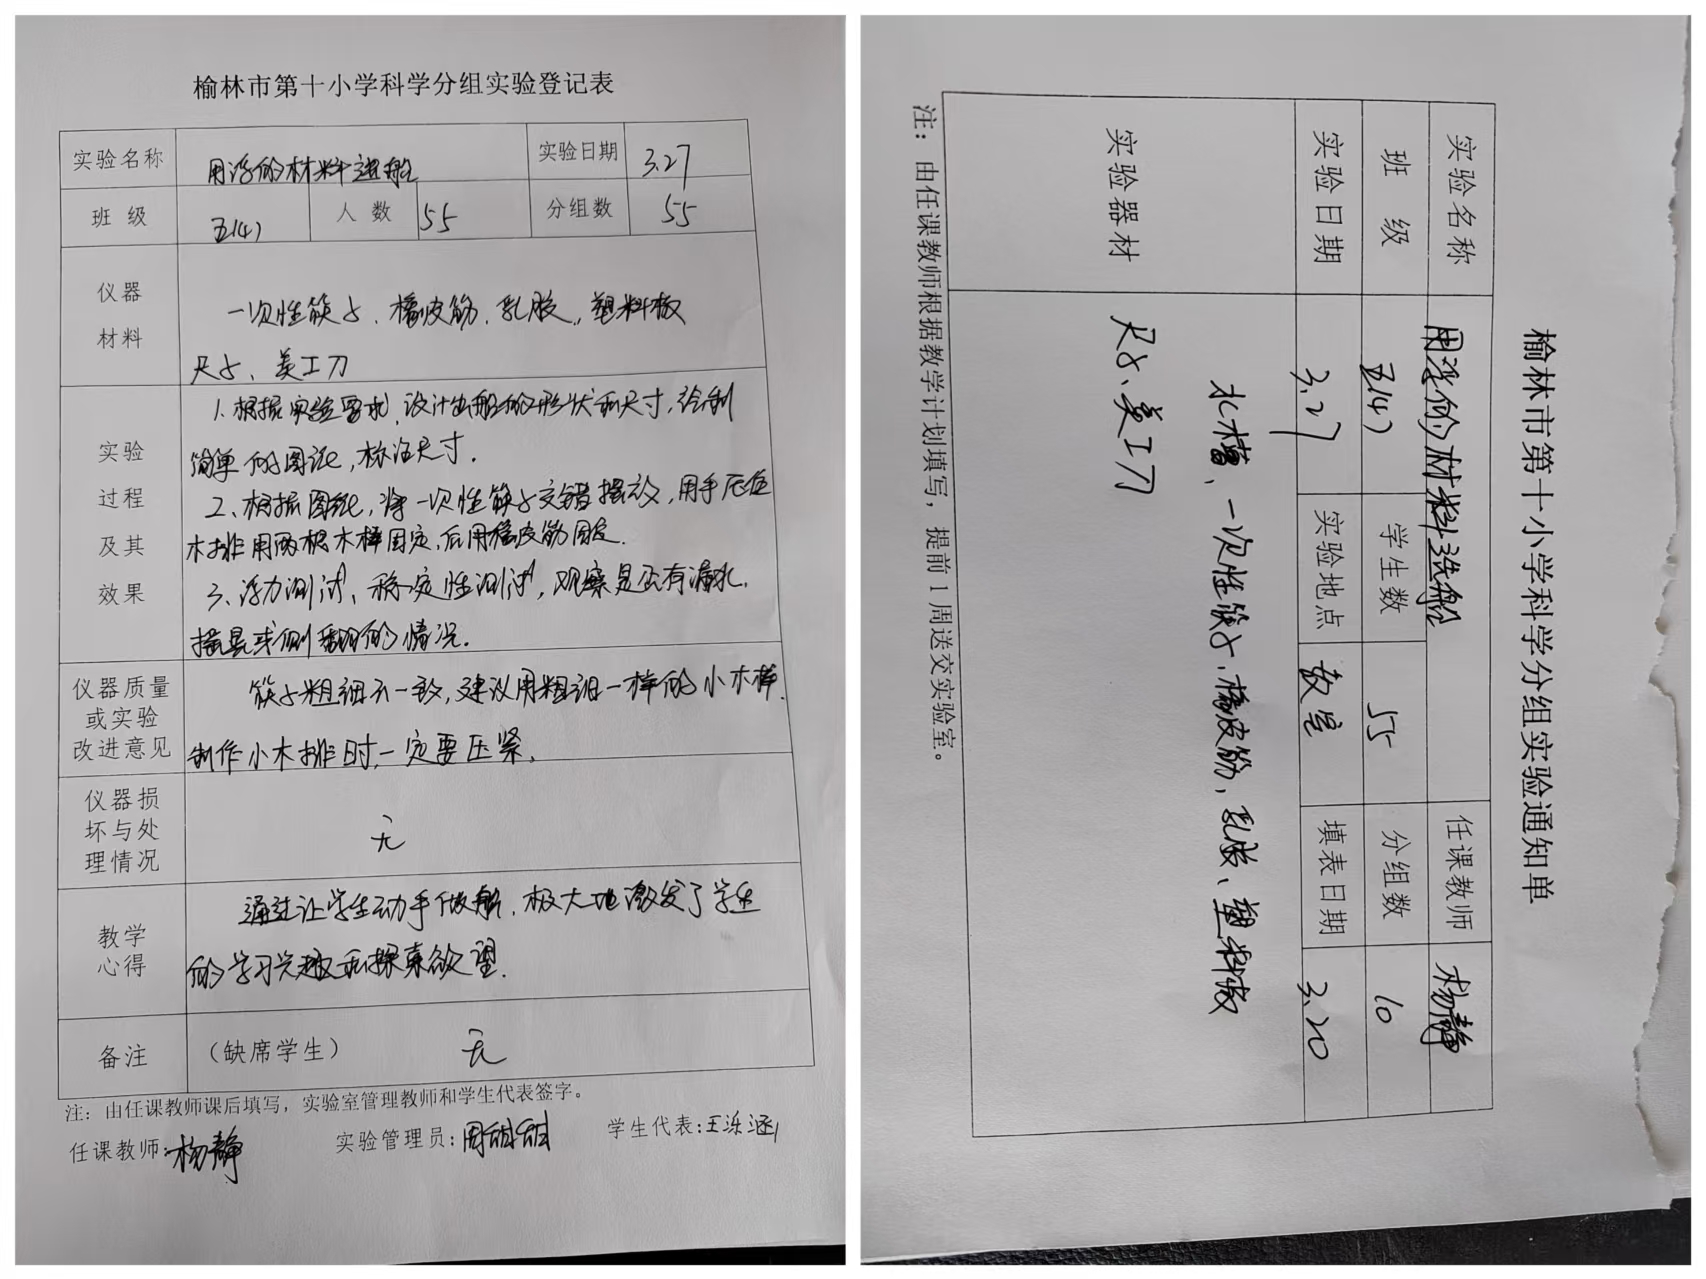 榆林市第十小学科学分组实验登记表
实验名称 用浮的材料造船 实验日期 3.27
班 级 五(4) 人 数 55 分组数 55
仪器
材料
一次性筷子、橡皮筋、乳胶、塑料板
尺子、美工刀
实验
过程
及其
效果
1、根据实验要求,设计出船的形状和尺寸,绘制
简单的图纸,标注尺寸.
2、根据图纸,将一次性筷子交错摆放,用手压住
木排用两根木棒固定,后用橡皮筋固定.
3、浮力测试、稳定性测试,观察是否有漏水.
摇晃或侧翻的情况.
仪器质量
或实验
改进意见
筷子粗细不一致,建议用粗细一样的小木棒.
制作小木排时,一定要压紧.
仪器损
坏与处
理情况
无
教学
心得
通过让学生动手做船,极大地激发了学生
的学习兴趣和探索欲望.
备注 (缺席学生) 无
注:由任课教师课后填写,实验室管理教师和学生代表签字。
任课教师:杨静 实验管理员:周甜甜 学生代表:王泺涵
榆林市第十小学科学分组实验通知单
实验名称 用浮的材料造船 任课教师 杨静
班 级 五(4) 学生数 55 分组数 10
实验日期 3.27 实验地点 教室 填表日期 3.20
实验器材
水槽、一次性筷子、橡皮筋、乳胶、塑料板
尺子、美工刀
注:由任课教师根据教学计划填写,提前1周送交实验室。